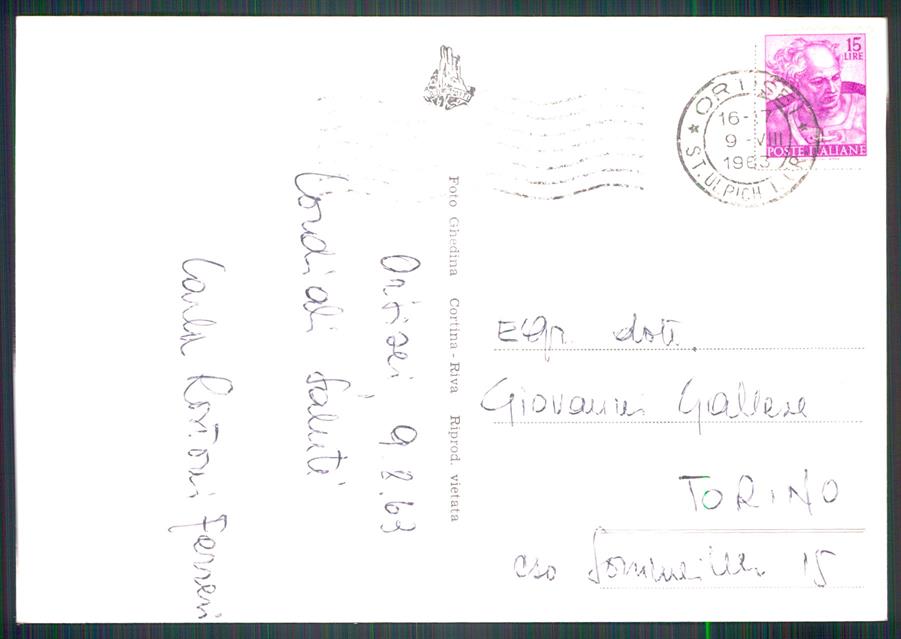 15
LIRE
POSTE ITALIANE
ORTISEI
16-17
9-VIII
1963
ST. ULRICH I. GR.
Foto Ghedina Cortina - Riva Riprod. vietata
Ortisei, 9.8.63
Cordiali saluti
Carla Ferreri
Egr. dott.
Giovanni Gallese
TORINO
cso Sommeiller 15